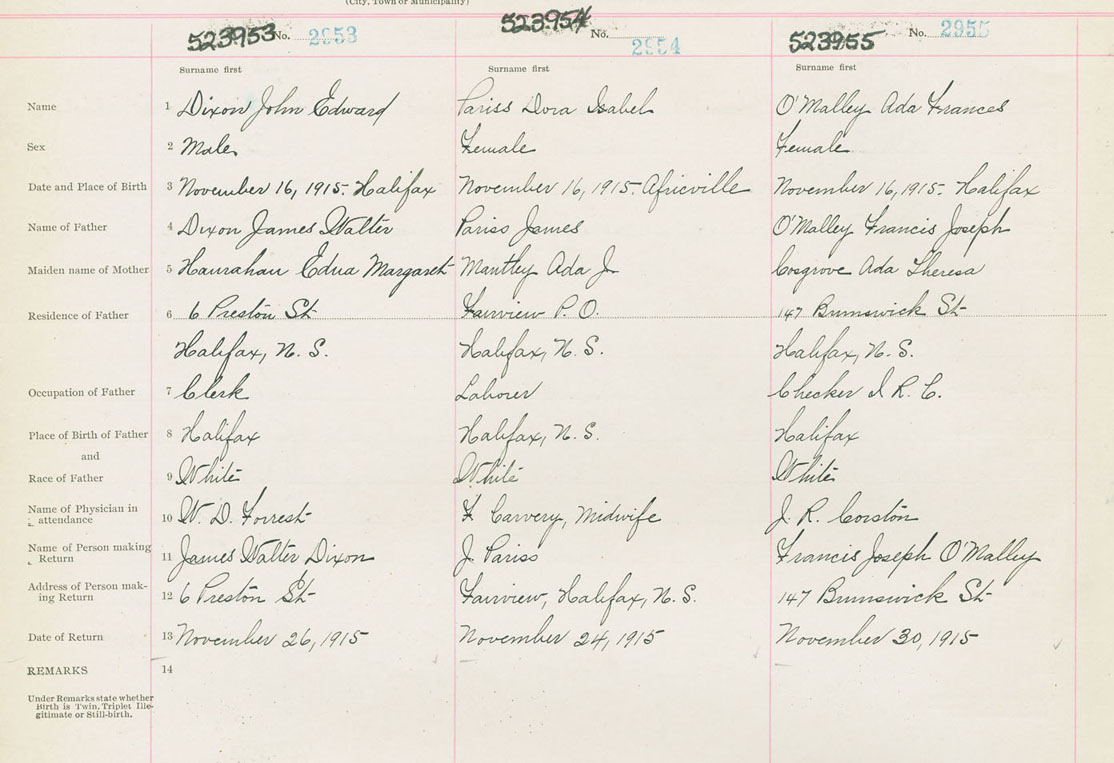 (City, Town or Municipality)
523953 No. 2953 523954 No. 2954 523955 No. 2955
Surname first Surname first Surname first
Name 1 Dixon John Edward Pariss Dora Isabel O'Malley Ada Frances
Sex 2 Male Female Female
Date and Place of Birth 3 November 16, 1915. Halifax November 16, 1915. Africville November 16, 1915. Halifax
Name of Father 4 Dixon James Walter Pariss James O'Malley Francis Joseph
Maiden name of Mother 5 Hanrahan Edna Margaret Mantley Ada J. Cosgrove Ada Theresa
Residence of Father 6 6 Preston St Fairview P. O. 147 Brunswick St
Halifax, N. S. Halifax, N. S. Halifax, N. S.
Occupation of Father 7 Clerk Laborer Checker I. R. C.
Place of Birth of Father 8 Halifax Halifax, N. S. Halifax
and
Race of Father 9 White White White
Name of Physician in attendance 10 W. D. Forrest F. Carvery, Midwife J. R. Corston
Name of Person making Return 11 James Walter Dixon J. Pariss Francis Joseph O'Malley
Address of Person mak-ing Return 12 6 Preston St Fairview, Halifax, N. S. 147 Brunswick St
Date of Return 13 November 26, 1915 November 24, 1915 November 30, 1915
REMARKS 14
Under Remarks state whether
Birth is Twin, Triplet Ille-
gitimate or Still-birth.